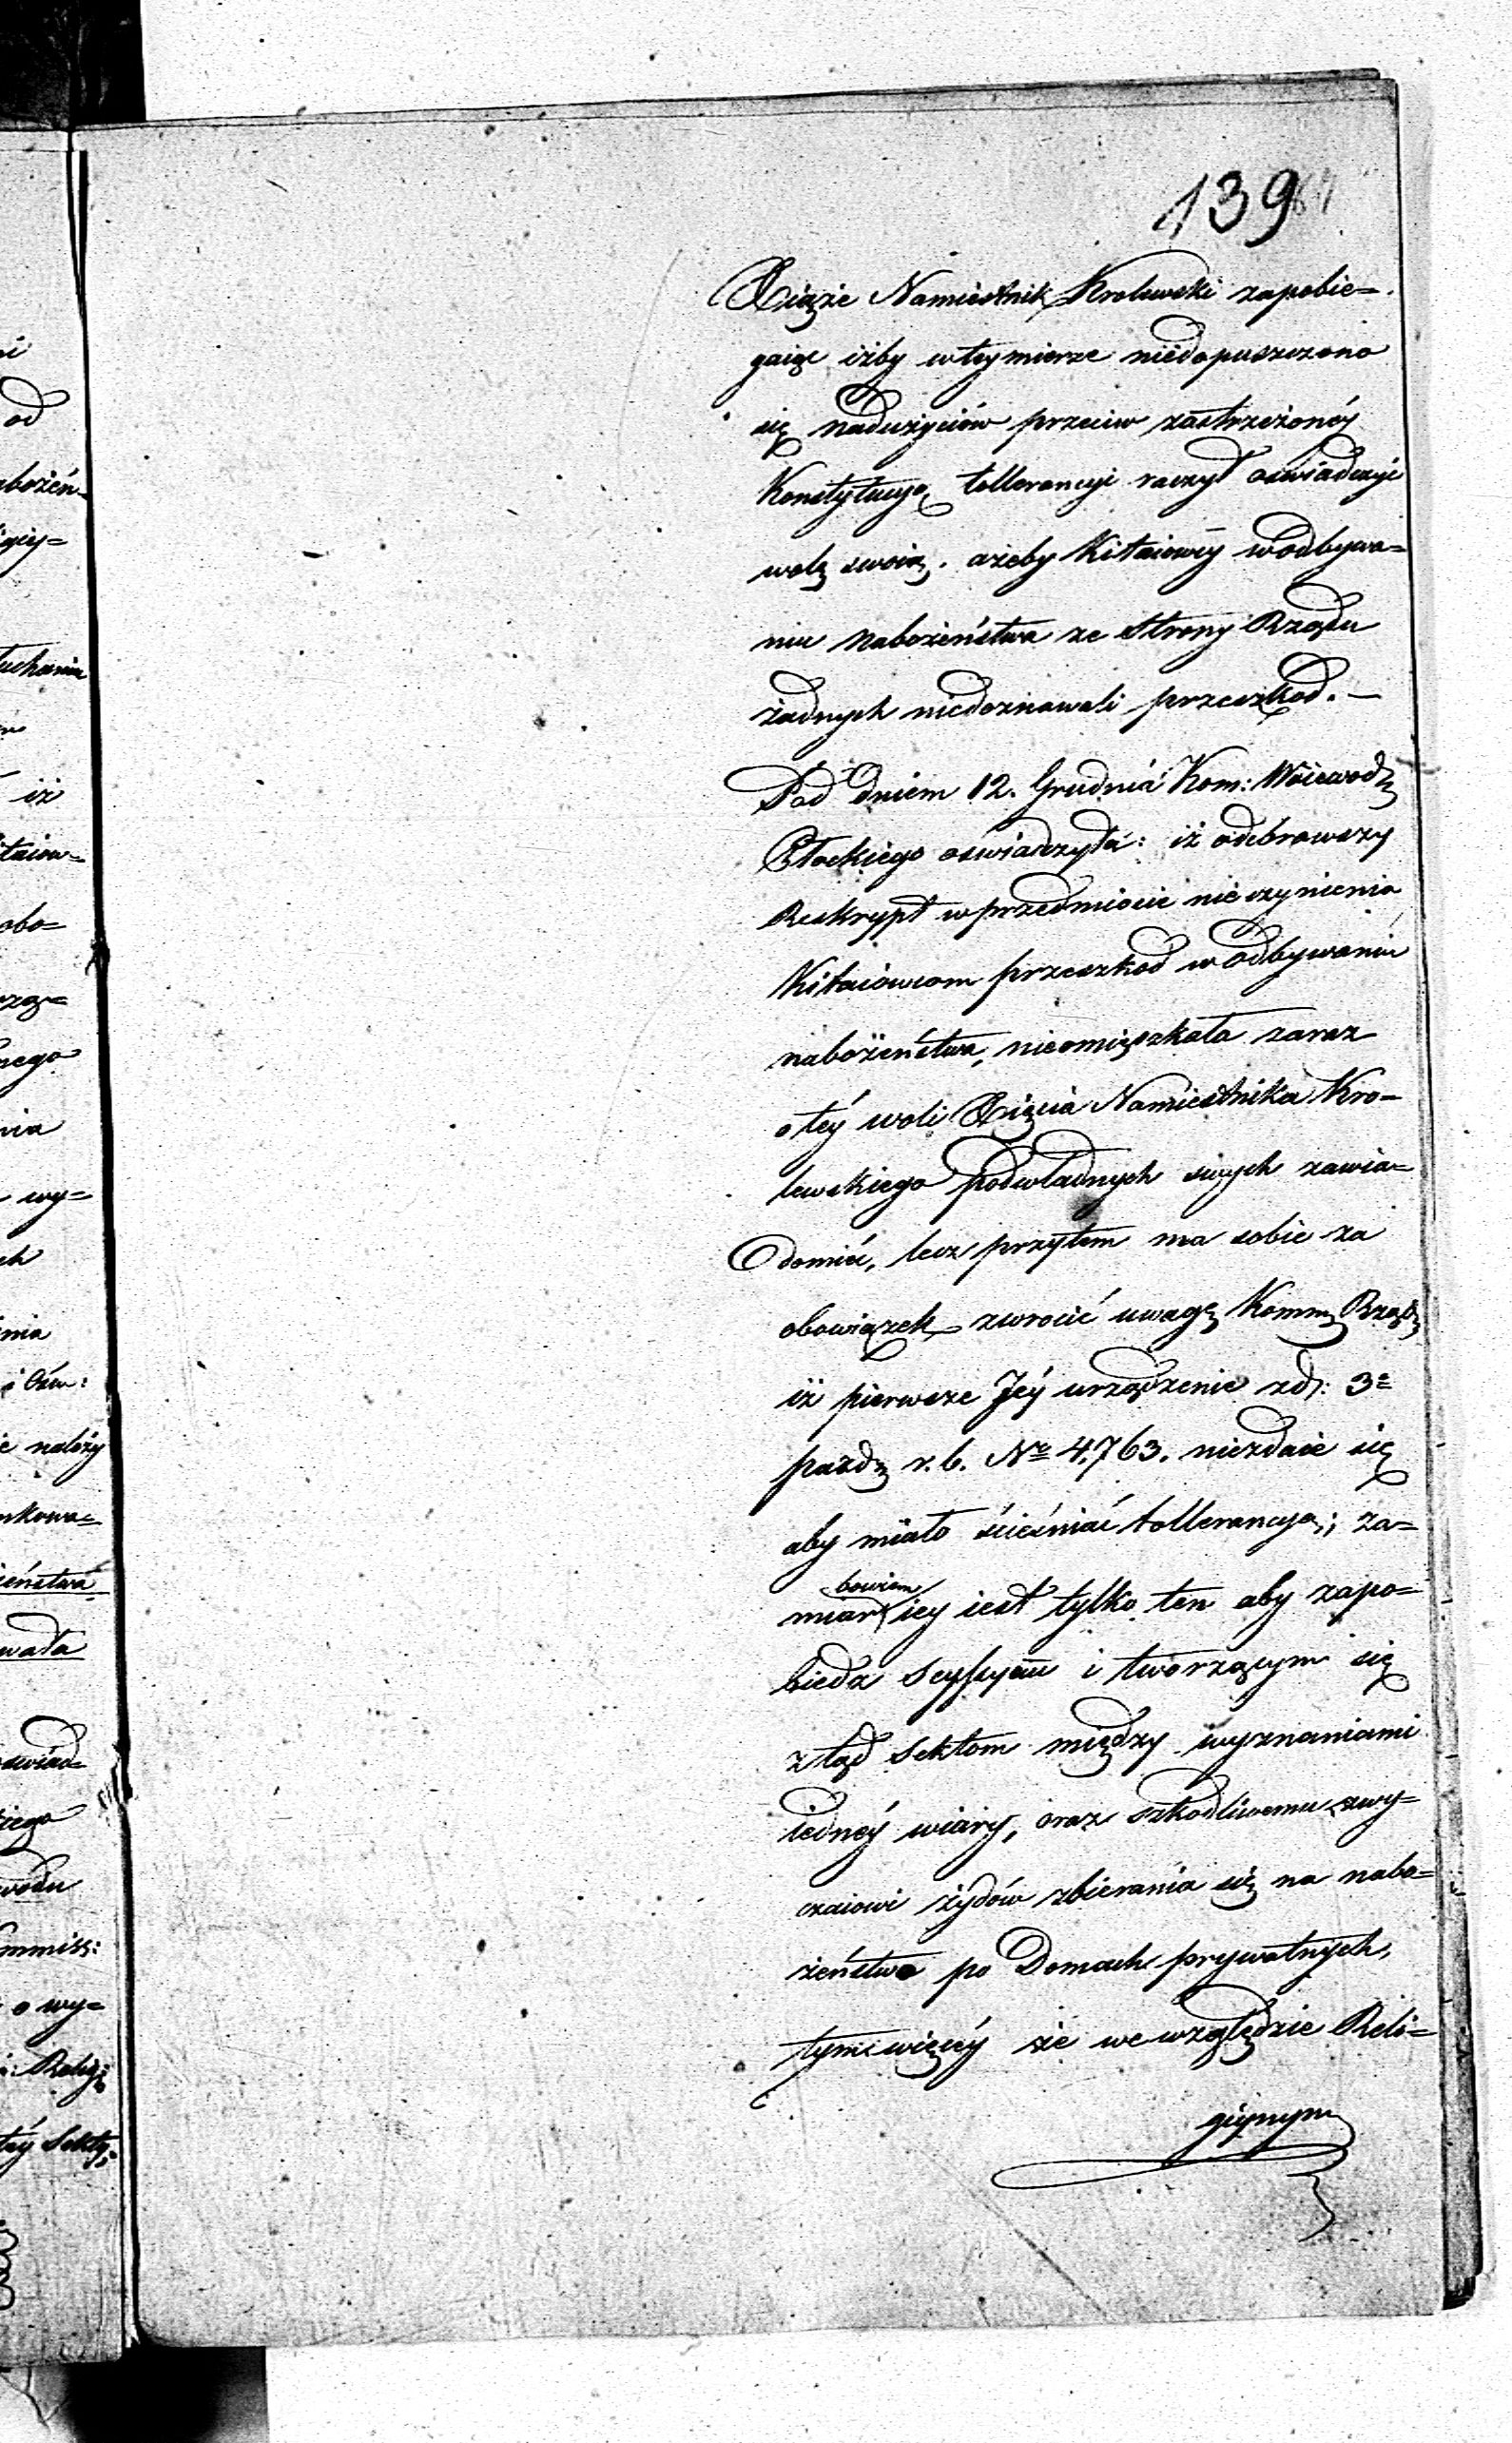 ni
od
abożeń-
iący=
łuchania
iż
itaiow=
obo=
nego
nia
wy=
ch
nia
i Ośw:
ie należy
nkowa=
ieństwa
wała
oswiad=
kiego
wodu
ommiss:
o wy=
i Relig:
tey Sekty,
139
Xiąże Namiestnik Krolewski zapobie=
gaiąc iżby w tey mierze niedopuszczono
się nadużyciów przeciw zastrzeżonéy
Konstytucyą tollerancyi raczył oświadczyć
wolą swoię. ażeby Kitaiowcy w odbywa=
niu nabożeństwa ze Strony Rządu
żadnych niedoznawali przeszkod. —
Pod dniem 12. Grudnia Kom: Woiewodz
Płockiego oświadczyła: iż odebrawszy
Reskrypt w przedmiocie nie czynienia
Kitaiowcom przeszkod w odbywaniu
nabożeństwa, nieomięszkała zaraz
o téy woli Xięcia Namiestnika Kro=
lewskiego podwładnych swych zawia=
domić, lecz przytem ma sobie za
obowiązek zwrocić uwagę Kommi Rządz
iż pierwsze Jéy urządzenie z d: 3º
pazdz r. b. Nº 4,763. niezdaie się
aby miało ścieśniać tollerancyą; za=
miar bowiem iey iest tylko ten aby zapo=
biedz scyssyom i tworzącym się
ztąd sektom między wyznaniami
iednéy wiary, oraz szkodliwemu zwy=
czaiowi żydów zbierania się na nabo=
żeństwo po Domach prywatnych,
tym więcéy że we względzie Reli=
giynym